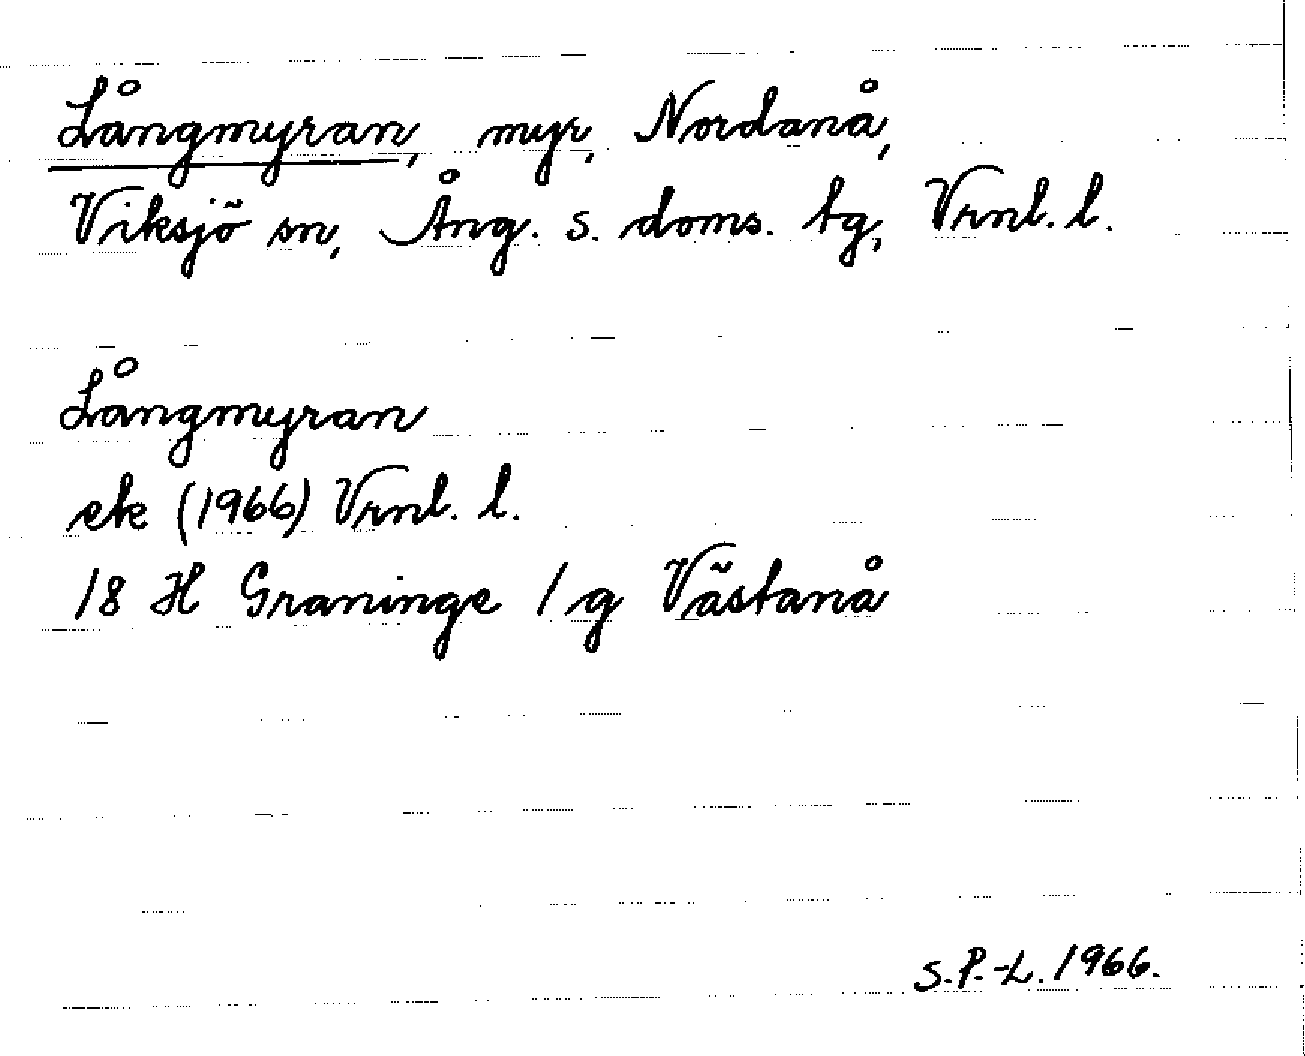 Långmyran, myr, Nordanå,
Viksjö sn, Ång. s. doms. tg, Vrnl. l.
Långmyran
ek (1966) Vrnl. l.
18 H Graninge 1 g Västanå
S. P.-L. 1966.